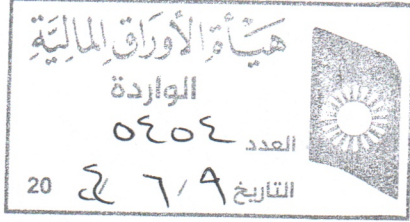 هَيْأَةُ الأَورَاقِ المَالِيَّةِ
الواردة
العدد ٥٤٥٤
التاريخ ٩ / ٦ / ٢٤ 20